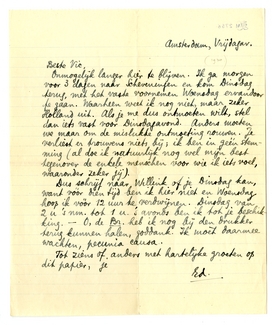 Amsterdam, Vrijdagav.
Beste Vic,
Onmogelijk langer hier te blijven. Ik ga morgen
voor 3 dagen naar Scheveningen en kom Dinsdag
terug, met het vaste voornemen Woensdag ervandoor
te gaan. Waarheen weet ik nog niet, maar zeker
Holland uit. Als je me dus ontmoeten wilt, stel
dan iets vast voor Dinsdagavond. Anders moeten
we maar om de mislukte ontmoeting rouwen. Je
verliest er trouwens niets bij, ik ben in géén stem-
ming (al doe ik natuurlijk nog wel mijn best
tegenover de enkele menschen voor wie ik iets voel,
waaronder zeker jij).
Dus schrijf naar Willink of je Dinsdag kan,
want vóór dien tijd ben ik hier niet en Woensdag
hoop ik vóór 12 uur te verdwijnen. Dinsdag van
2 u 's nm. tot 1 u. 's avonds ben ik tot je beschik-
king. — O, de Br. heb ik nog bij den drukker
terug kunnen halen, goddank. Ik moet daarmee
wachten, pecunia causa.
Tot ziens of, anders met hartelijke groeten op
dit papier, je
Ed.